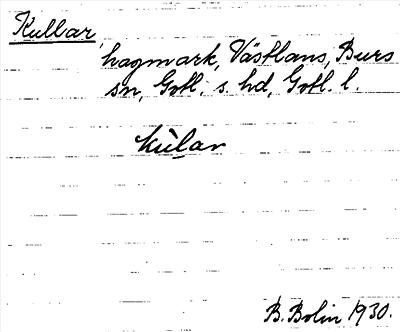 Kullar,
hagmark, Västlaus, Burs
sn, Gotl. s. hd, Gotl. l.
kùlar
B. Bolin 1930.